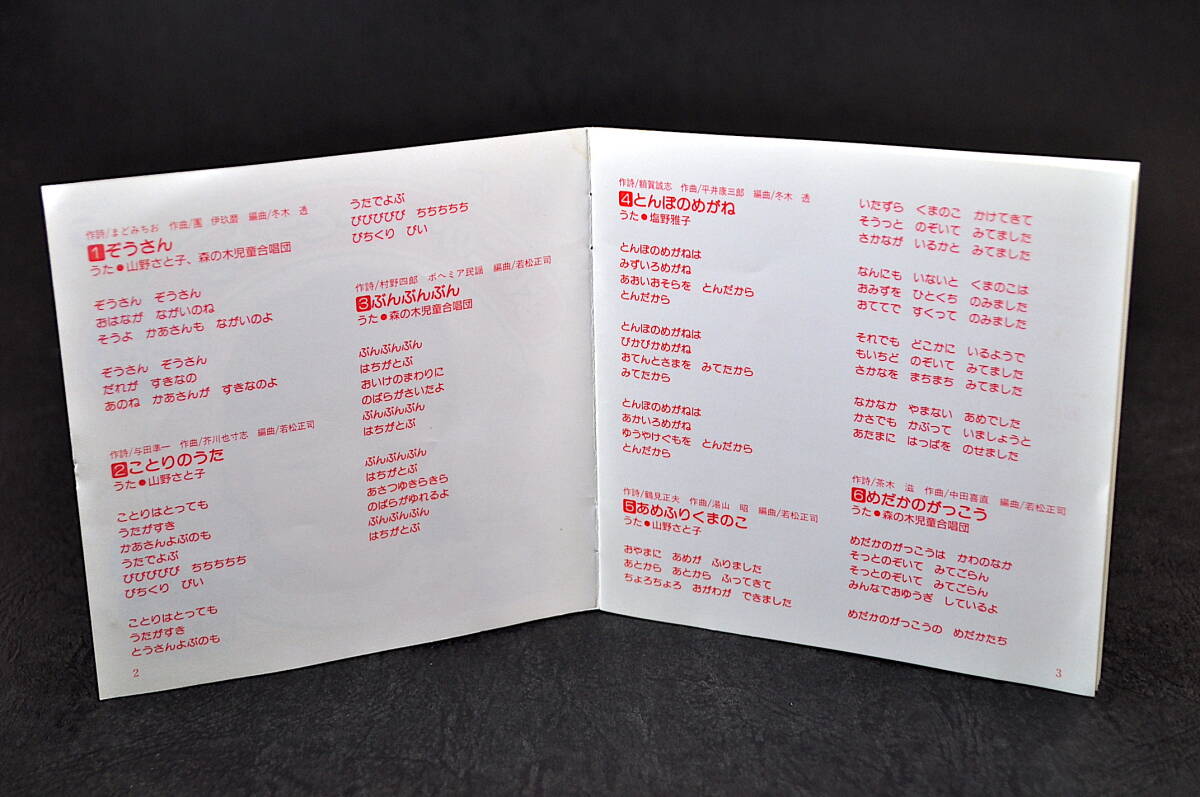 作詩/まどみちお 作曲/團 伊玖磨 編曲/冬木 透
1 ぞうさん
うた●山野さと子、森の木児童合唱団
ぞうさん ぞうさん
おはなが ながいのね
そうよ かあさんも ながいのよ
ぞうさん ぞうさん
だれが すきなの
あのね かあさんが すきなのよ
作詩/与田準一 作曲/芥川也寸志 編曲/若松正司
2 ことりのうた
うた●山野さと子
ことりはとっても
うたがすき
かあさんよぶのも
うたでよぶ
ぴぴぴぴぴ ちちちちち
ぴちくり ぴい
ことりはとっても
うたがすき
とうさんよぶのも
2
うたでよぶ
ぴぴぴぴぴ ちちちちち
ぴちくり ぴい
作詩/村野四郎 ボヘミア民謡 編曲/若松正司
3 ぶんぶんぶん
うた●森の木児童合唱団
ぶんぶんぶん
はちがとぶ
おいけのまわりに
のばらがさいたよ
ぶんぶんぶん
はちがとぶ
ぶんぶんぶん
はちがとぶ
あさつゆきらきら
のばらがゆれるよ
ぶんぶんぶん
はちがとぶ
作詩/額賀誠志 作曲/平井康三郎 編曲/冬木 透
4 とんぼのめがね
うた●塩野雅子
とんぼのめがねは
みずいろめがね
あおいおそらを とんだから
とんだから
とんぼのめがねは
ぴかぴかめがね
おてんとさまを みてたから
みてたから
とんぼのめがねは
あかいろめがね
ゆうやけぐもを とんだから
とんだから
作詩/鶴見正夫 作曲/湯山 昭 編曲/若松正司
5 あめふりくまのこ
うた●山野さと子
おやまに あめが ふりました
あとから あとから ふってきて
ちょろちょろ おがわが できました
いたずら くまのこ かけてきて
そうっと のぞいて みてました
さかなが いるかと みてました
なんにも いないと くまのこは
おみずを ひとくち のみました
おててで すくって のみました
それでも どこかに いるようで
もいちど のぞいて みてました
さかなを まちまち みてました
なかなか やまない あめでした
かさでも かぶって いましょうと
あたまに はっぱを のせました
作詩/茶木 滋 作曲/中田喜直 編曲/若松正司
6 めだかのがっこう
うた●森の木児童合唱団
めだかのがっこうは かわのなか
そっとのぞいて みてごらん
そっとのぞいて みてごらん
みんなでおゆうぎ しているよ
めだかのがっこうの めだかたち
3